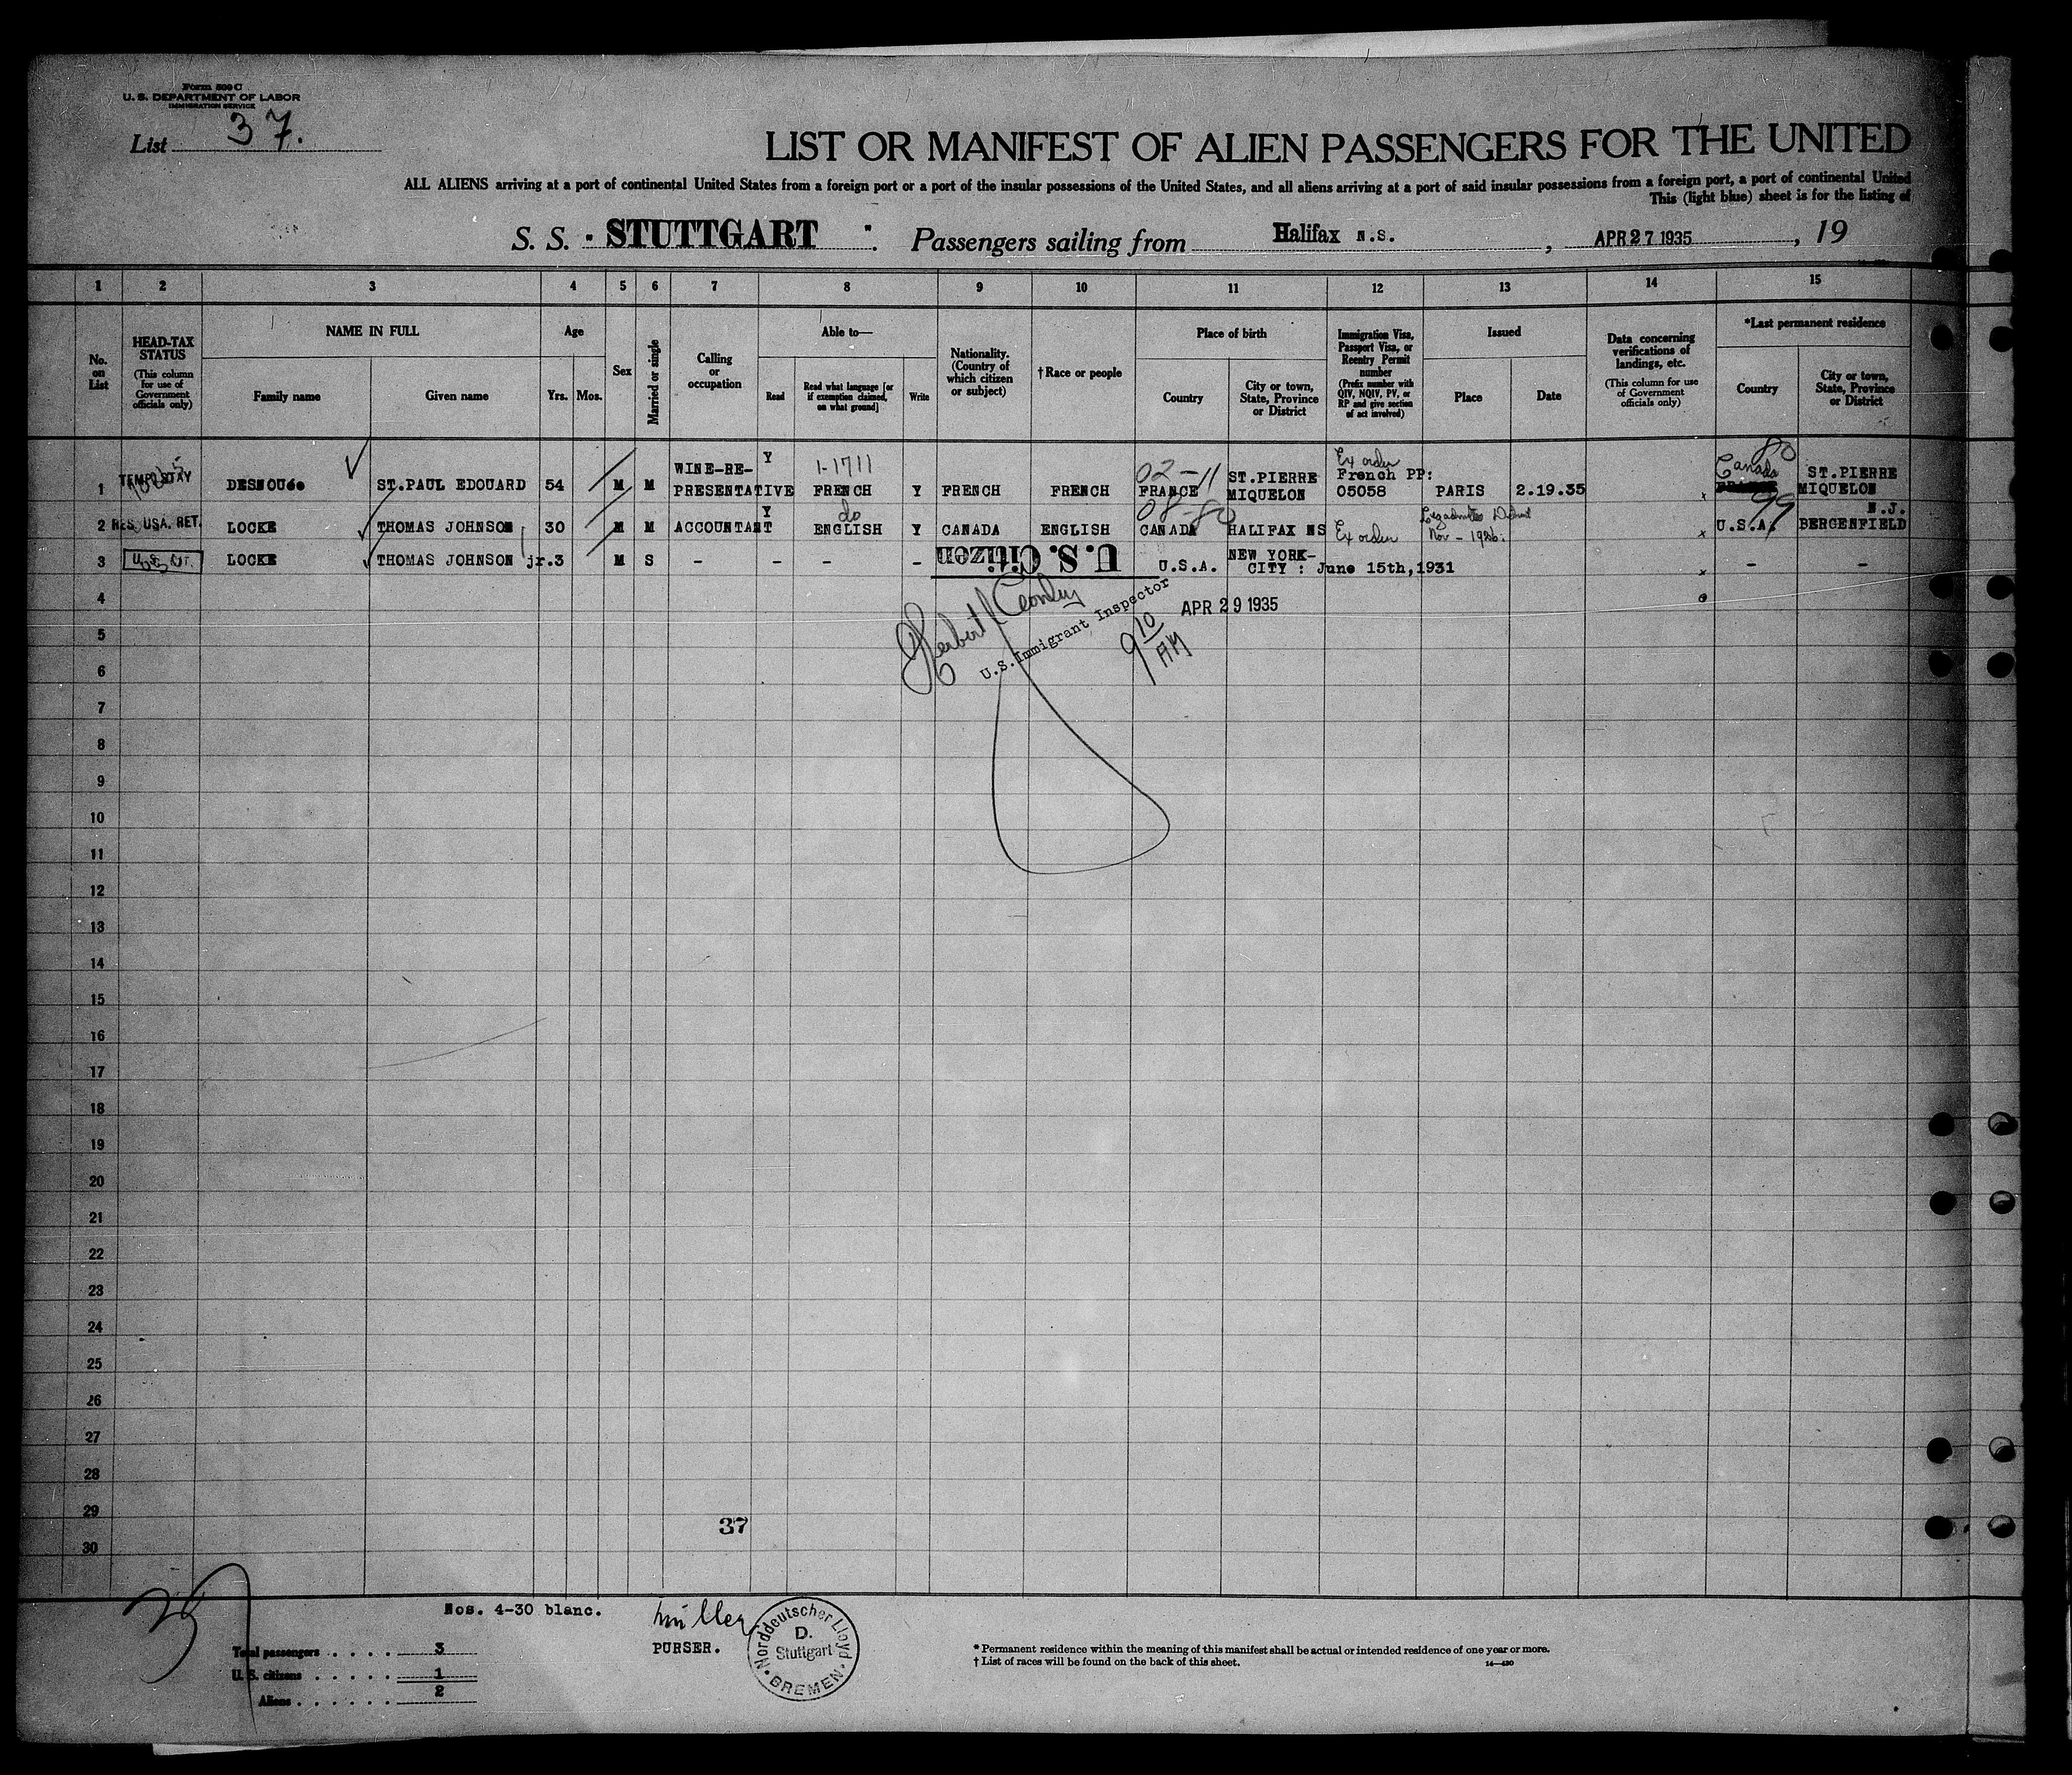 Form 500 C
U. S. DEPARTMENT OF LABOR
IMMIGRATION SERVICE
List 37.
LIST OR MANIFEST OF ALIEN PASSENGERS FOR THE UNITED
ALL ALIENS arriving at a port of continental United States from a foreign port or a port of the insular possessions of the United States, and all aliens arriving at a port of said insular possessions from a foreign port, a port of continental United
This (light blue) sheet is for the listing of
S. S. " STUTTGART ". Passengers sailing from Halifax N.S. , APR 27 1935 , 19
1 2 3 4 5 6 7 8 9 10 11 12 13 14 15
No. on List
HEAD-TAX STATUS
(This column for use of Government officials only)
NAME IN FULL
Family name
Given name
Age
Yrs.
Mos.
Sex
Married or single
Calling or occupation
Able to—
Read
Read what language [or if exemption claimed, on what ground]
Write
Nationality. (Country of which citizen or subject)
† Race or people
Place of birth
Country
City or town, State, Province or District
Immigration Visa, Passport Visa, or Reentry Permit number
(Prefix number with QIV, NQIV, PV, or RP and give section of act involved)
Issued
Place
Date
Data concerning verifications of landings, etc.
(This column for use of Government officials only)
*Last permanent residence
Country
City or town, State, Province or District
1 TEMP. STAY ST.PAUL EDOUARD 54 M M WINE-RE-PRESENTATIVE Y 1-1711 FRENCH Y FRENCH FRENCH 02-11 FRANCE ST.PIERRE MIQUELON Ex order French PP: 05058 PARIS 2.19.35 80 Canada ST.PIERRE MIQUELON
2 RES. USA. RET. LOCKE THOMAS JOHNSON 30 M M ACCOUNTANT Y do ENGLISH Y CANADA ENGLISH 08-80 CANADA HALIFAX NS Ex order Nov - 1926. 99 U.S.A. N.J. BERGENFIELD
3 LOCKE THOMAS JOHNSON jr. 3 M S - - - - U.S. Citizen U.S.A. NEW YORK-CITY : June 15th,1931 - -
4
U.S. Immigrant Inspector
APR 29 1935
9 10 AM
5
6
7
8
9
10
11
12
13
14
15
16
17
18
19
20
21
22
23
24
25
26
27
28
29
37
30
Nos. 4-30 blanc.
Müller
PURSER.
Norddeutscher Lloyd
D. Stuttgart
BREMEN
Total passengers . . . . . 3
U. S. citizens . . . . . 1
Aliens . . . . . . 2
* Permanent residence within the meaning of this manifest shall be actual or intended residence of one year or more.
† List of races will be found on the back of this sheet.
14—430